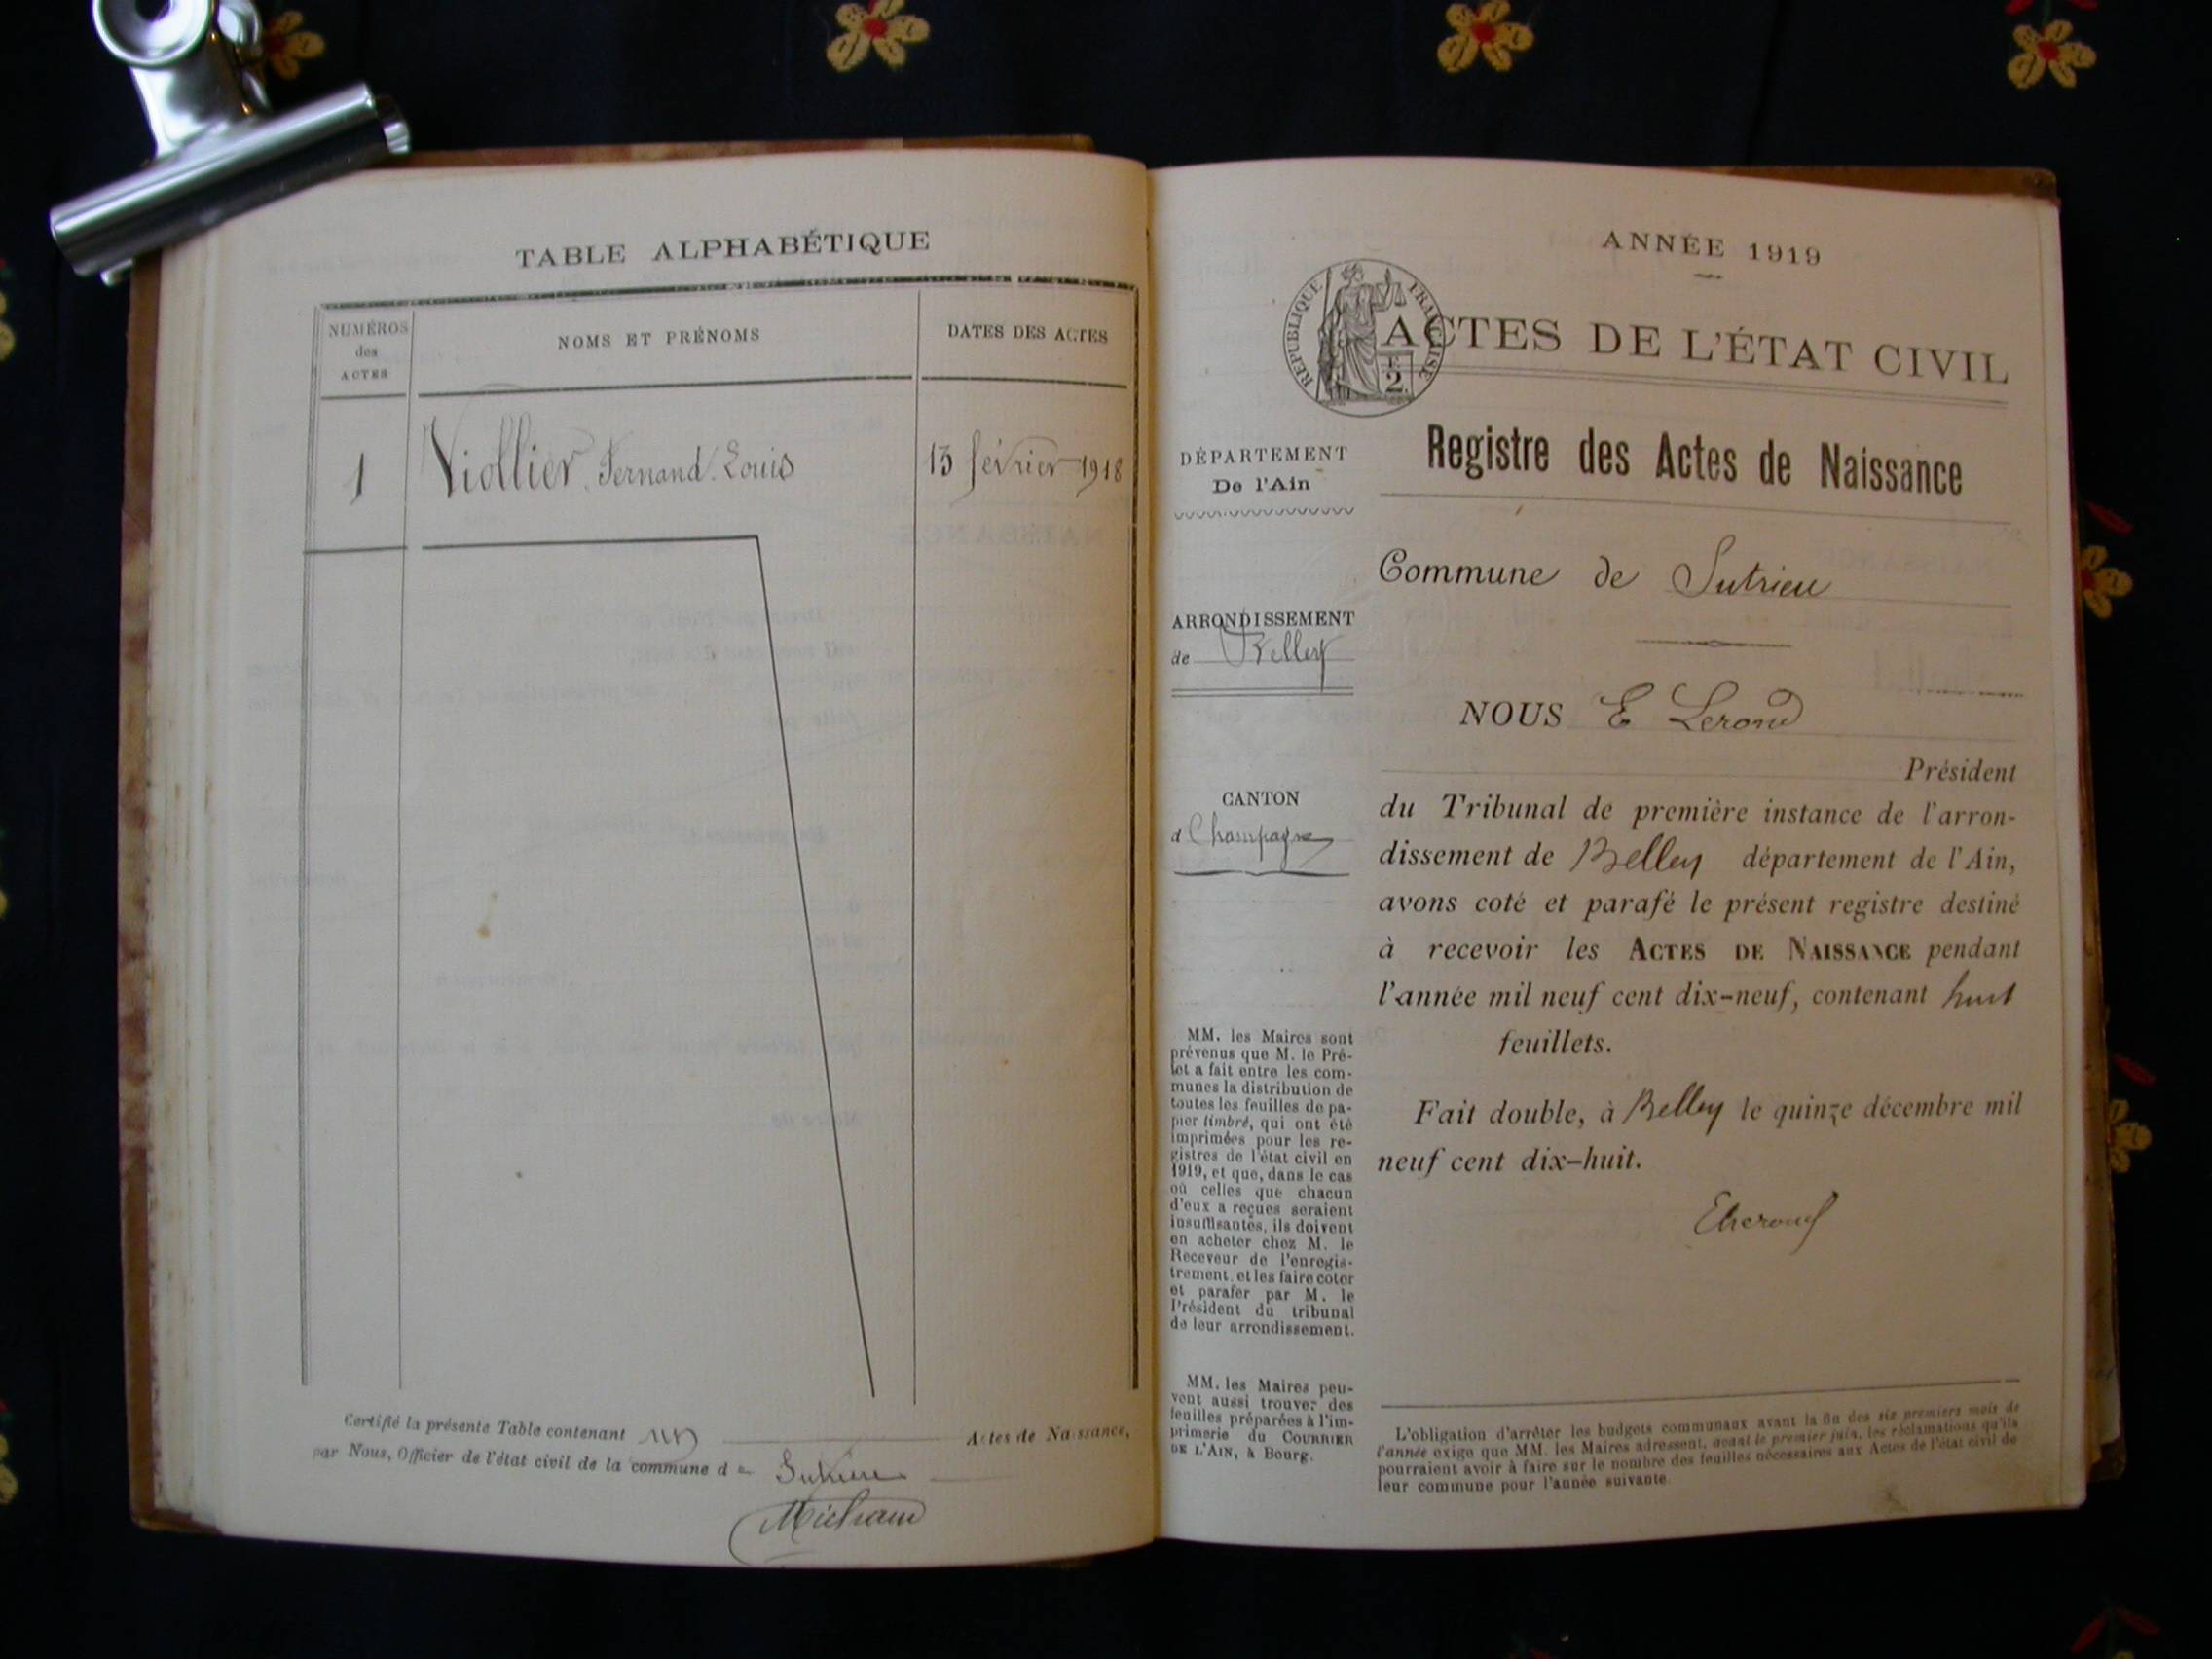 TABLE ALPHABÉTIQUE
NUMÉROS
des
ACTES
NOMS ET PRÉNOMS
DATES DES ACTES
1 Viollier Fernand Louis 13 février 1918
Certifié la présente Table contenant un Actes de Naissance,
par Nous, Officier de l'état civil de la commune de Sutrieu
Michaud
ANNÉE 1919
RÉPUBLIQUE FRANÇAISE
2
ACTES DE L'ÉTAT CIVIL
DÉPARTEMENT
De l'Ain
ARRONDISSEMENT
de Belley
CANTON
d Champagne
MM. les Maires sont
prévenus que M. le Pré-
fet a fait entre les com-
munes la distribution de
toutes les feuilles de pa-
pier timbré, qui ont été
imprimées pour les re-
gistres de l'état civil en
1919, et que, dans le cas
où celles que chacun
d'eux a reçues seraient
insuffisantes, ils doivent
en acheter chez M. le
Receveur de l'enregis-
trement, et les faire coter
et parafer par M. le
Président du tribunal
de leur arrondissement.
MM. les Maires peu-
vent aussi trouver des
feuilles préparées à l'im-
primerie du COURRIER
DE L'AIN, à Bourg.
Registre des Actes de Naissance
Commune de Sutrieu
NOUS E Lerond
Président
du Tribunal de première instance de l'arron-
dissement de Belley département de l'Ain,
avons coté et parafé le présent registre destiné
à recevoir les ACTES DE NAISSANCE pendant
l'année mil neuf cent dix-neuf, contenant huit
feuillets.
Fait double, à Belley le quinze décembre mil
neuf cent dix-huit.
ELerond
L'obligation d'arrêter les budgets communaux avant la fin des six premiers mois de
l'année exige que MM. les Maires adressent, avant le premier juin, les réclamations qu'ils
pourraient avoir à faire sur le nombre des feuilles nécessaires aux Actes de l'état civil de
leur commune pour l'année suivante.